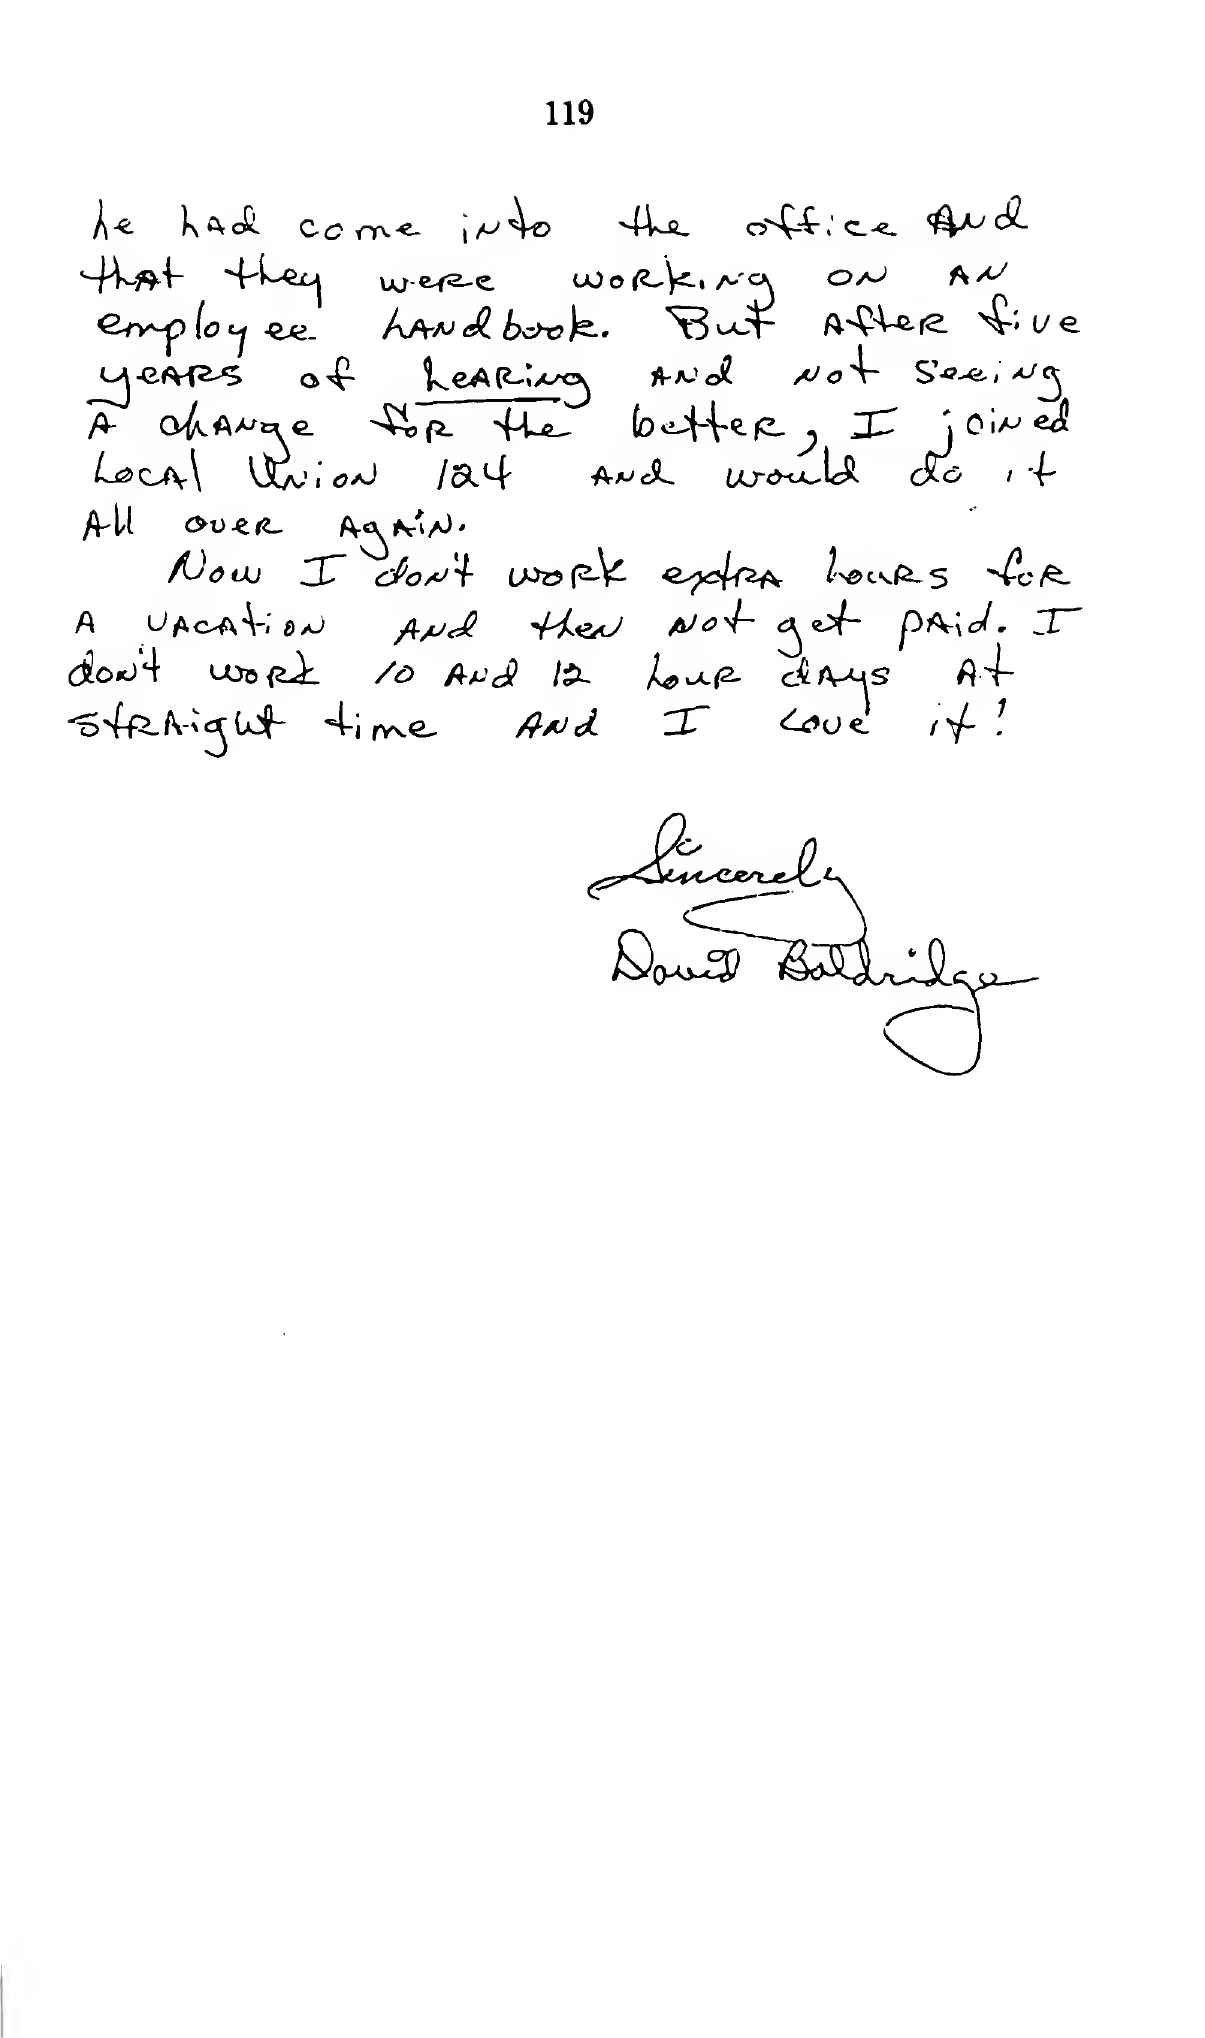 119
he had come into the office And
that they were working on an
employee handbook. But after five
years of hearing and not seeing
a change for the better, I joined
Local Union 124 and would do it
all over again.
Now I don't work extra hours for
a vacation and then not get paid. I
don't work 10 and 12 hour days at
straight time and I love it!
Sincerely
David Baldridge